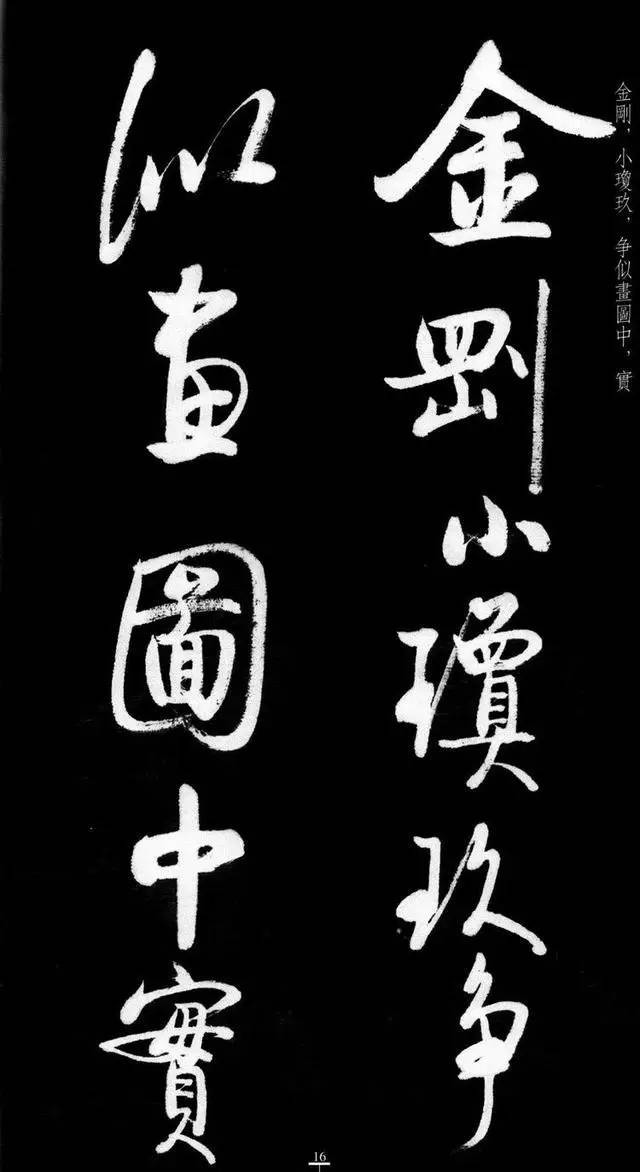 金剛，小瓊玖，争似畫圖中，實
金剛小瓊玖争
似畫圖中實
16